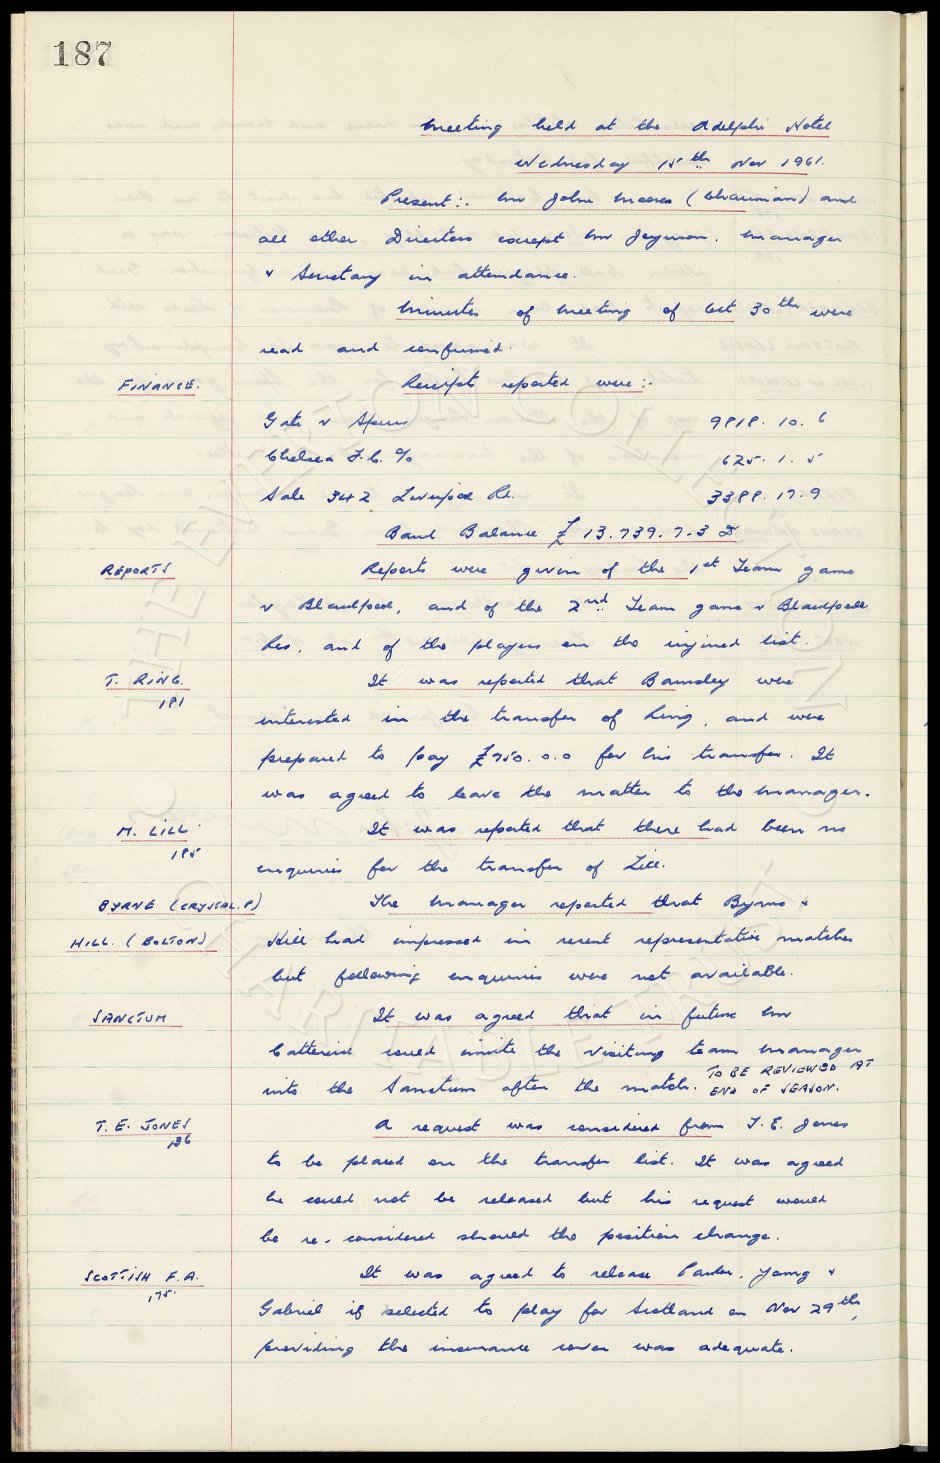 187
Meeting held at the Adelphi Hotel
Wednesday 15th Nov 1961.
Present:- Mr John Moores (Chairman) and
all other Directors except Mr Jenyuson. Manager
& Secretary in attendance.
Minutes of meeting of Oct 30th were
read and confirmed.
FINANCE. Receipts reported were:-
Gate v Spurs 9818. 10. 6
Chelsea F.C. % 625. 1. 5
Sale 342 Liverpool Rd. 3388. 17. 9
Bank Balance £13.739. 7. 3 D
REPORTS Reports were given of the 1st Team game
v Blackpool, and of the 2nd Team game v Blackpool
Res, and of the players on the injured list.
T. RING. It was reported that Barnsley were
181 interested in the transfer of Ring, and were
prepared to pay £750. 0. 0 for his transfer. It
was agreed to leave the matter to the Manager.
M. LILL It was reported that there had been no
185 enquiries for the transfer of Lill.
BYRNE (CRYSTAL. P) The Manager reported that Byrne &
HILL. (BOLTON) Hill had impressed in recent representative matches
but following enquiries were not available.
SANCTUM It was agreed that in future Mr
Catterick could invite the visiting team manager
into the Sanctum after the match. TO BE REVIEWED AT
END OF SEASON.
T. E. JONES A request was considered from T. E. Jones
186 to be placed on the transfer list. It was agreed
he could not be released but his request would
be re-considered should the position change.
SCOTTISH F.A. It was agreed to release Parker, Young &
175 Gabriel if selected to play for Scotland on Nov 29th,
providing the insurance cover was adequate.
THE EVERTON COLLECTION
CHARITABLE TRUST